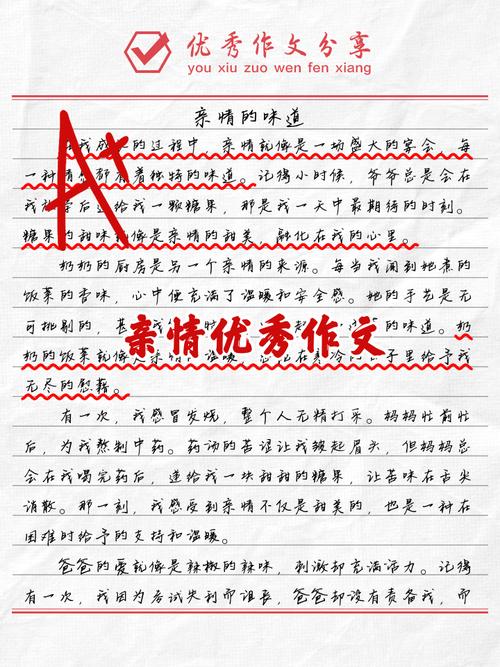 优秀作文分享
you xiu zuo wen fen xiang
亲情的味道
A+
在我成长的过程中，亲情就像是一场盛大的宴会，每
一种情感都有着独特的味道。记得小时候，爷爷总是会在
我放学后递给我一颗糖果，那是我一天中最期待的时刻。
糖果的甜味就像是亲情的甜美，融化在我的心里。
奶奶的厨房是另一个亲情的来源。每当我闻到她煮的
饭菜的香味，心中便充满了温暖和安全感。她的手艺是无
可挑剔的，甚 的味道。奶
亲情优秀作文
奶的饭菜就像是 里给予我
无尽的慰藉。
有一次，我感冒发烧，整个人无精打采。妈妈忙前忙
后，为我熬制中药。药汤的苦涩让我皱起眉头，但妈妈总
会在我喝完药后，递给我一块甜甜的糖果，让苦味在舌尖
消散。那一刻，我感受到亲情不仅是甜美的，也是一种在
困难时给予的支持和温暖。
爸爸的爱就像是辣椒的辣味，刺激却充满活力。记得
有一次，我因为考试失利而沮丧，爸爸却没有责备我，而